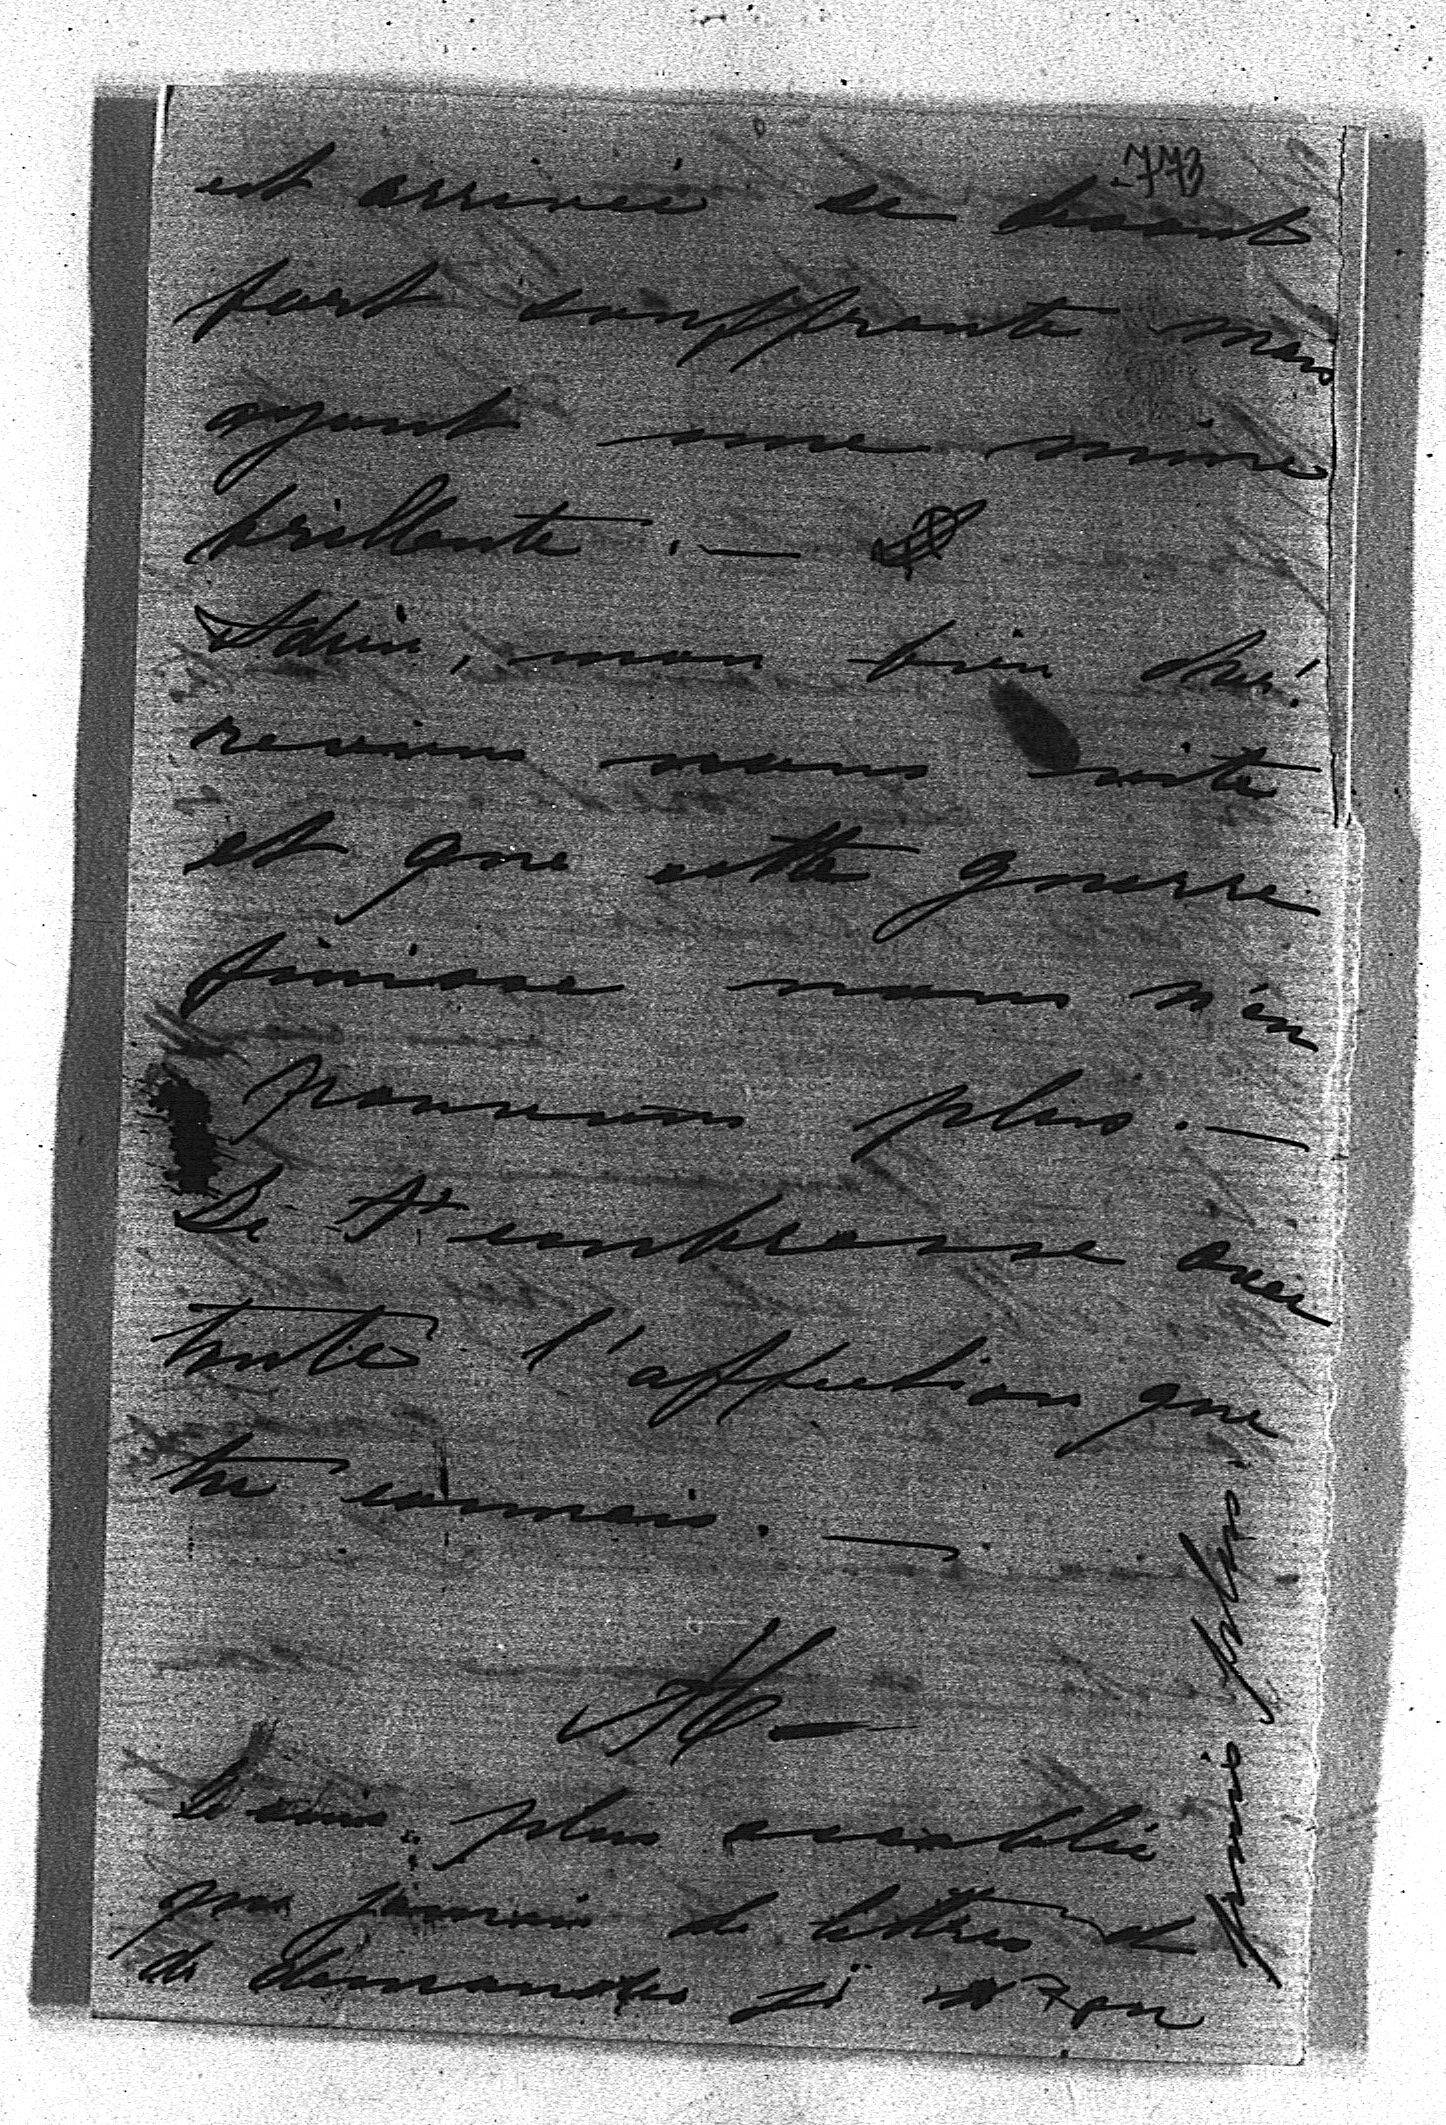 773
est arrivée se disant
fort souffrante mais
ayant une mine
brillante. —
Adieu, mon bien cher.
reviens nous vite
et que cette guerre
finisse nous n'en
pouvons plus. —
Je t'embrasse avec
toute l'affection que
tu connais. —
Je suis plus accablée
que jamais de lettres et
de demandes je n'en
puis plus.